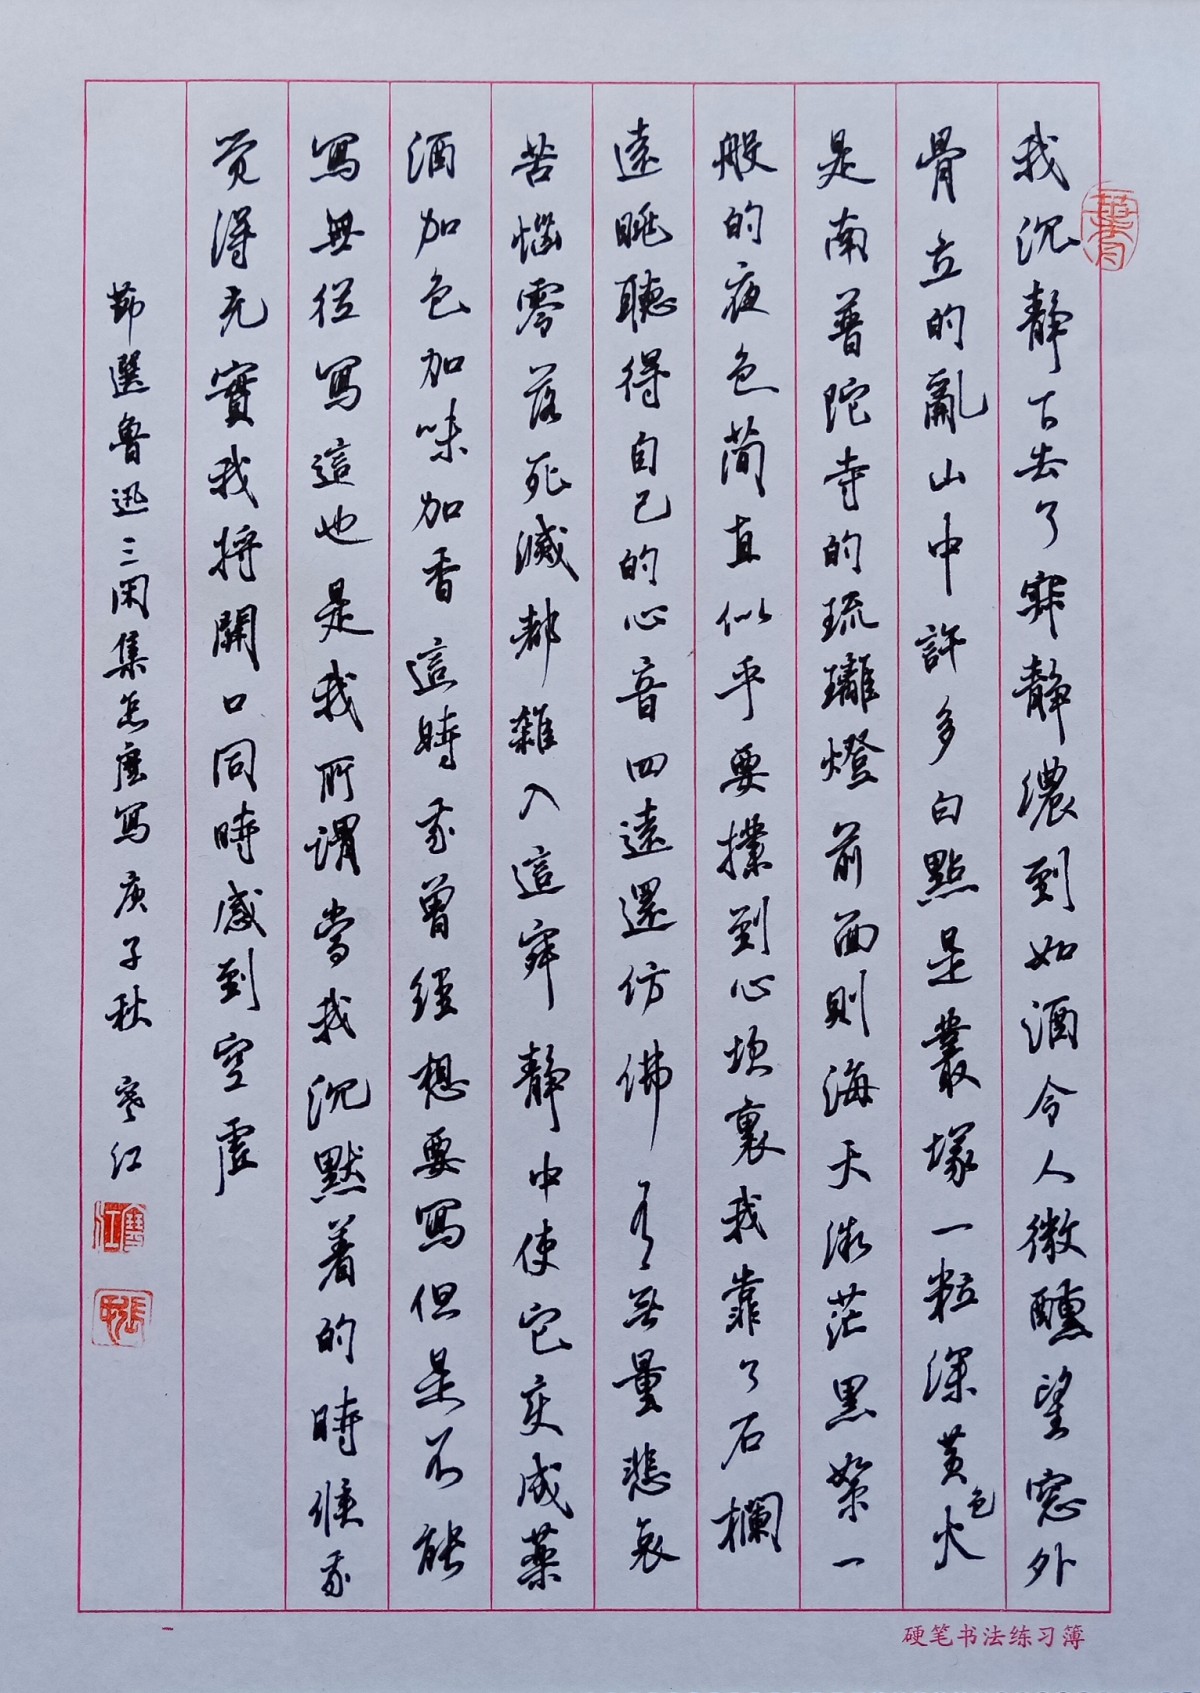 我沉静下去了寂静濃到如酒令人微醺望窓外
骨立的亂山中許多白點是叢塚一粒深黄色火
是南普陀寺的琉璃燈前面則海天微茫黑絮一
般的夜色简直似乎要撲到心坎裏我靠了石欄
遠眺聽得自己的心音四遠還仿佛有無量悲哀
苦惱零落死滅都雜入這寂静中使它变成藥
酒加色加味加香這時我曾經想要寫但是不能
寫無從寫這也是我所謂當我沉默着的時候我
覚得充實我将開口同時感到空虚
莭選魯迅三闲集怎麼寫庚子秋 寒江
硬笔书法练习簿